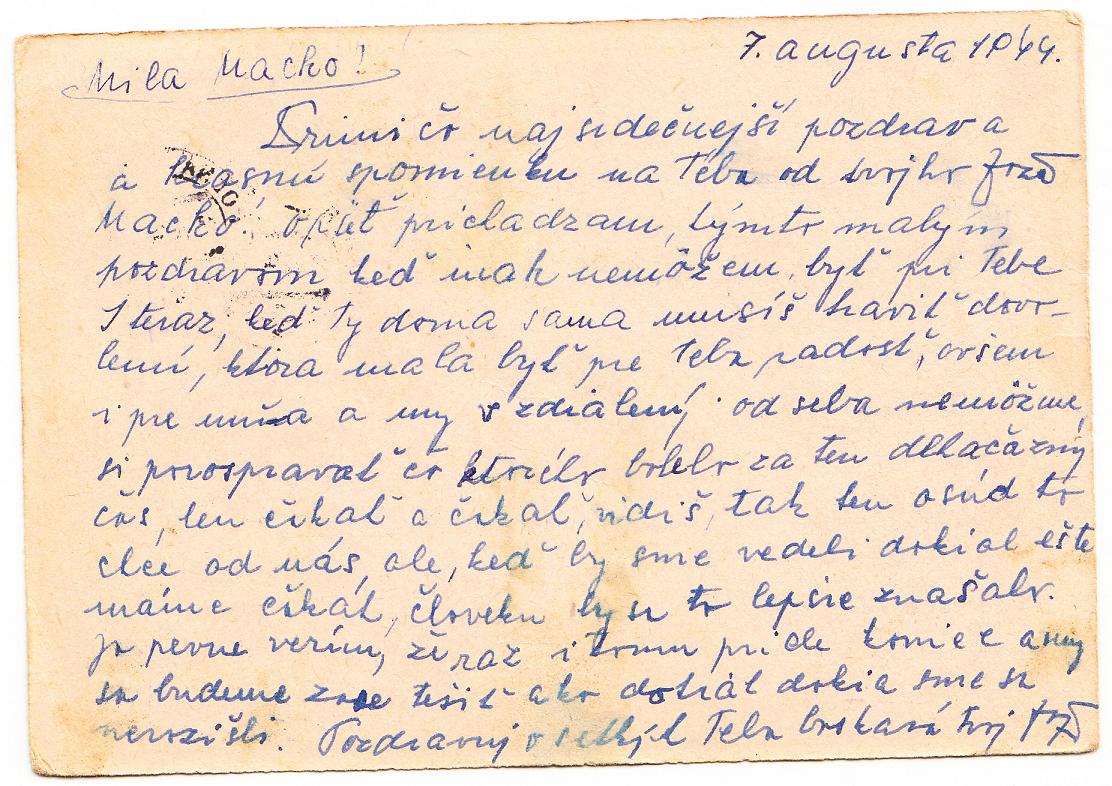 7. augusta 1944.
Mila Macko!
Primi čo najsrdečnejší pozdrav a
a krasnú spomienku na Teba od tvojho
Macko! Opäť prichadzam, týmto malým
pozdravom keď inak nemôžem byť pri Tebe
I teraz, keď Ty doma sama musíš traviť dovo-
lenú, ktora mala byť pre Teba radosť, ovšem
i pre mňa a my vzdialený od seba nemôžme
si porospravať čo ktorého bolelo za ten dlhačázný
čas, len čakať a čakať, vidiš, tak ten osúd to
chce od nás, ale, keď by sme vedeli dokial ešte
máme čakať, človeku by sa to lepšie znašalo.
Ja pevne verím, že raz i tomu pride koniec a my
sa budeme zase tešiť ako dotiál dokia sme sa
nerozišli. Pozdravuj všetkých Teba boskavá tvoj